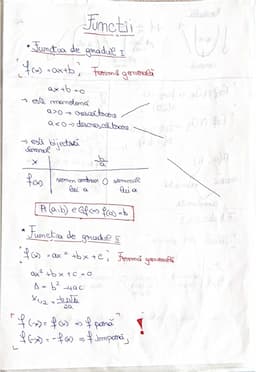 Funcții
• Funcția de gradul I
f(x) = ax+b; Formă generală
ax+b=0
→ este monotonă
a>0 → crescătoare
a<0 → descrescătoare
→ este bijectivă
semnul
x -b/a
f(x) semn contrar lui a 0 semnul lui a
A(a;b) ∈ Gf ⇔ f(a)=b
• Funcția de gradul II
f(x) = ax² + bx + c; Formă generală
ax² + bx + c = 0
Δ = b² - 4ac
x₁,₂ = -b±√Δ / 2a
f(-x) = f(x) ⇒ f pară
f(-x) = -f(x) ⇒ f impară !